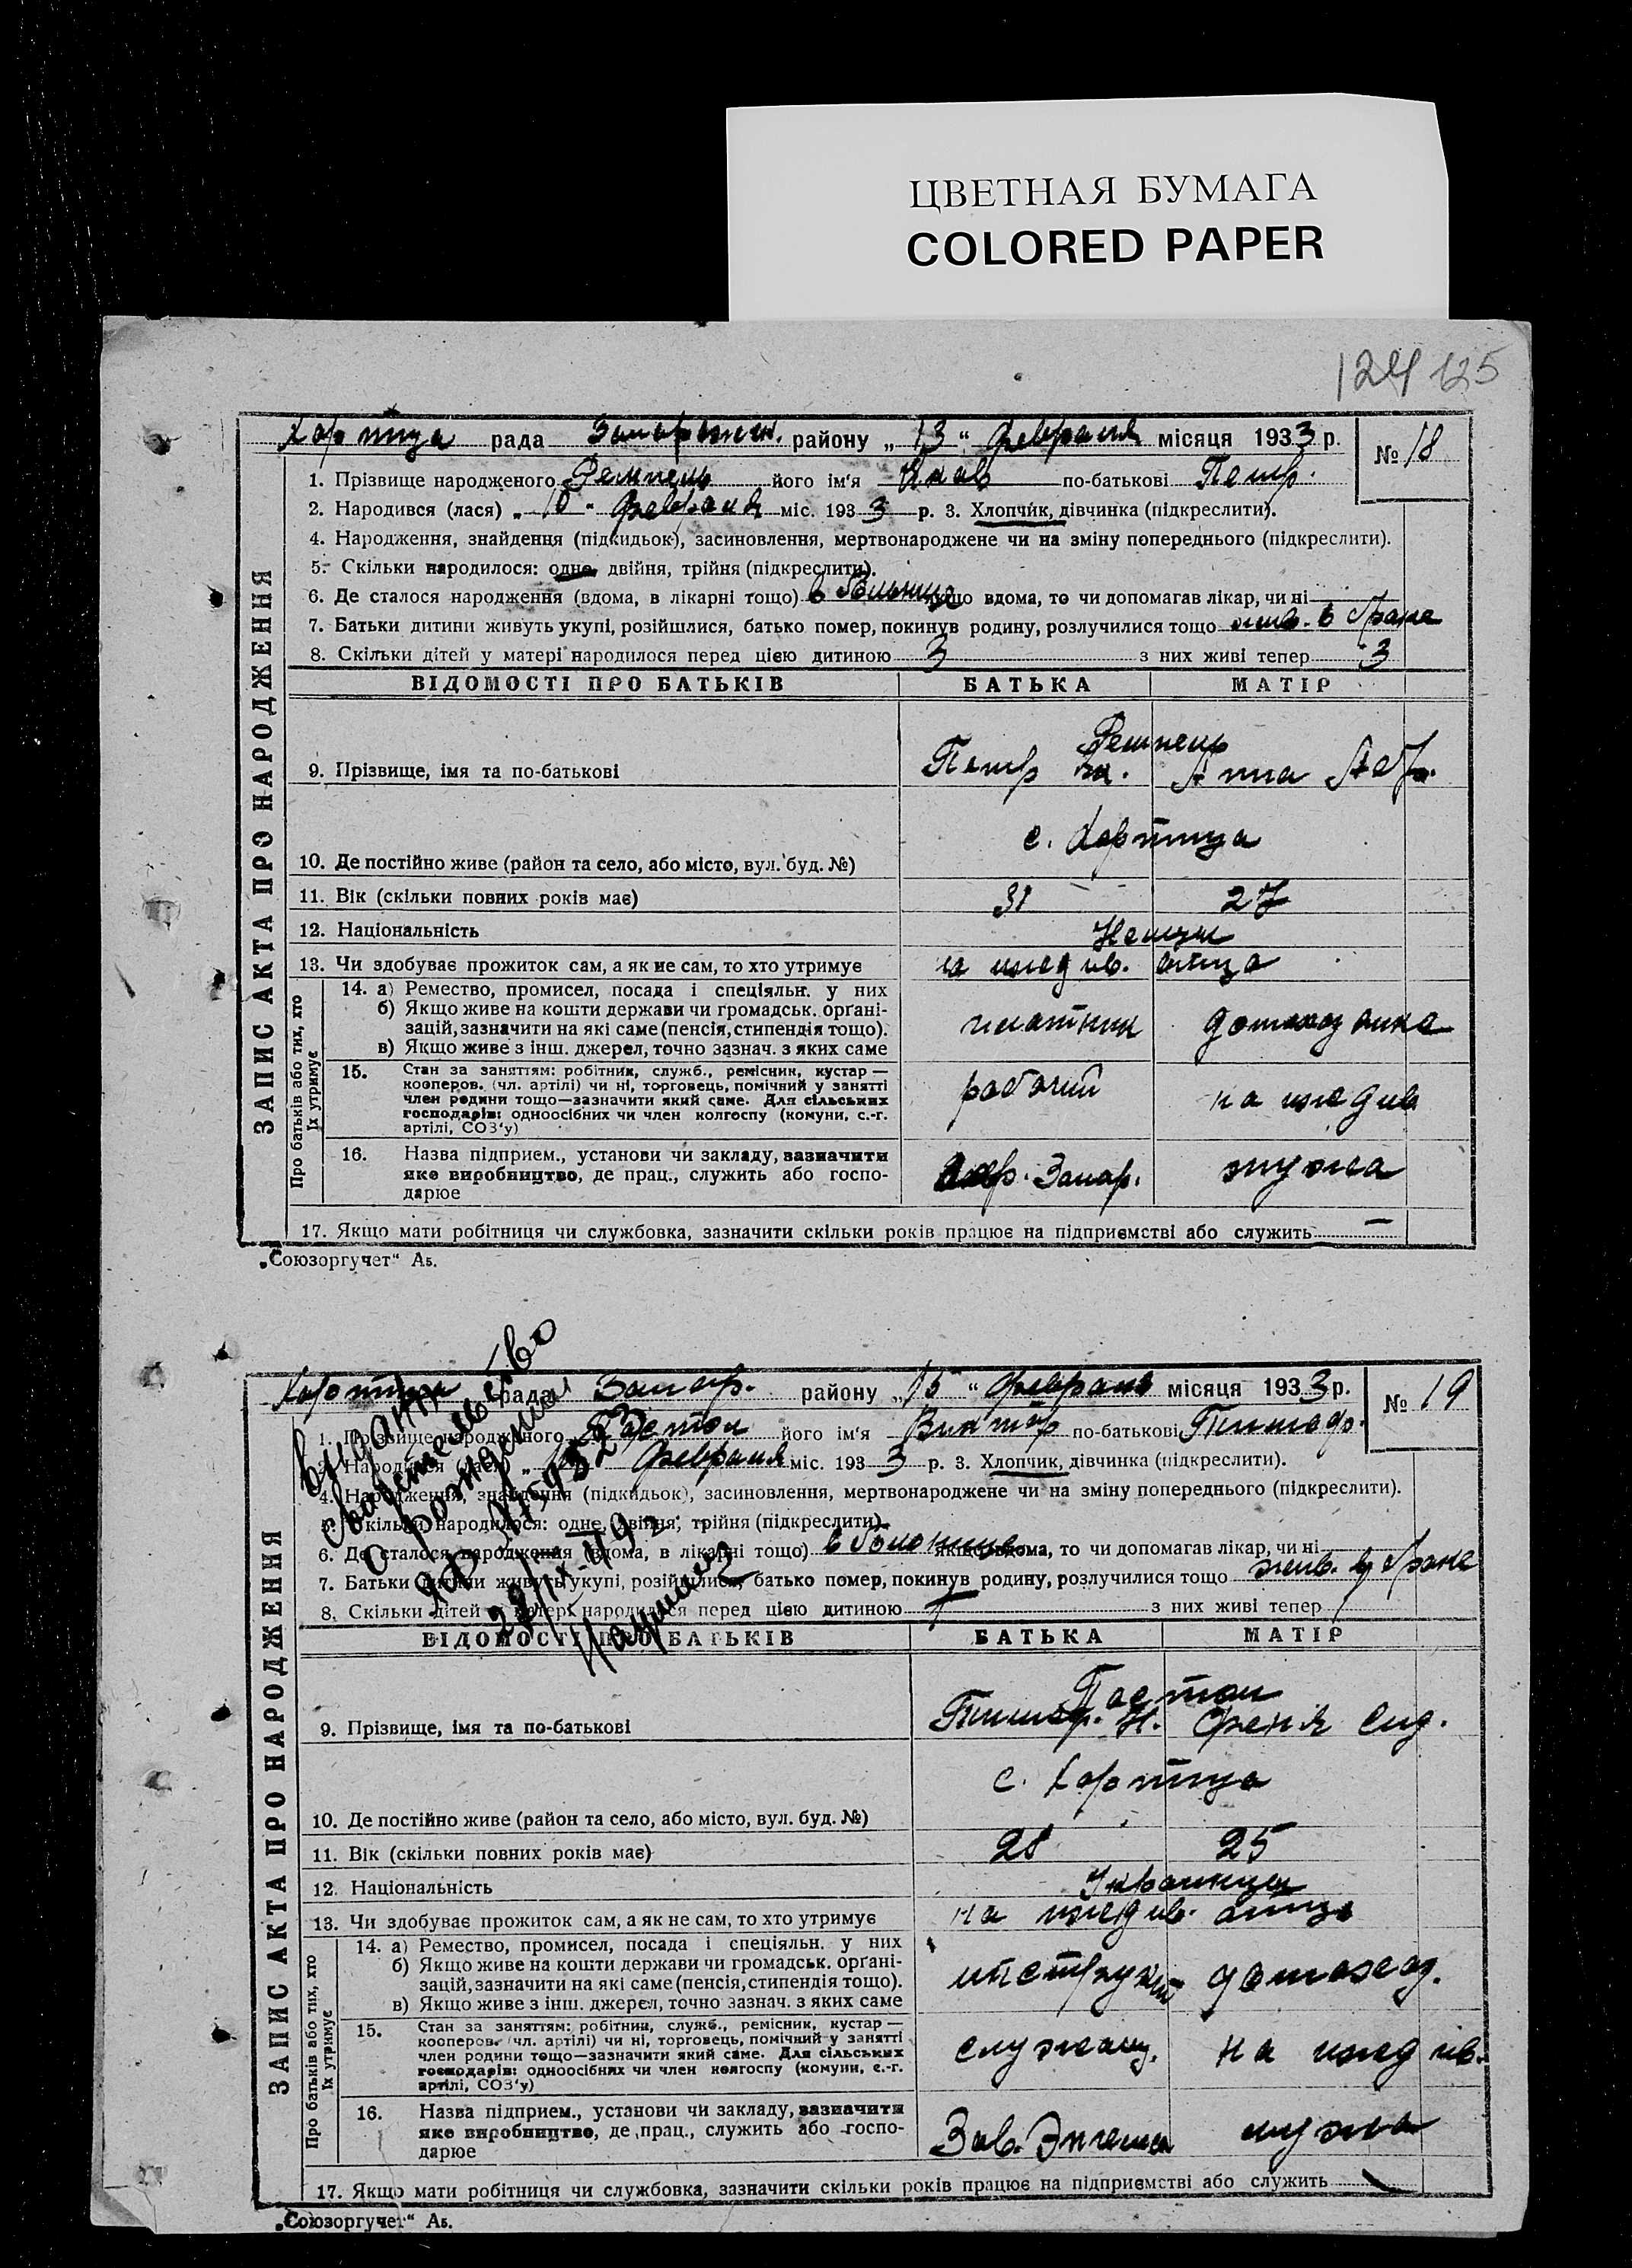 ЦВЕТНАЯ БУМАГА
COLORED PAPER
124 125
Хортица рада Запорожск. району „13“ февраля місяця 1933 р.
№ 18
ЗАПИС АКТА ПРО НАРОДЖЕННЯ
1. Прізвище народженого Ремпель його ім'я по-батькові Петр.
2. Народився (лася) „10“ февраля міс. 1933 р. 3. Хлопчик, дівчинка (підкреслити).
4. Народження, знайдення (підкидьок), засиновлення, мертвонароджене чи на зміну попереднього (підкреслити).
5. Скільки народилося: одне, двійня, трійня (підкреслити).
6. Де сталося народження (вдома, в лікарні тощо) в больнице якщо вдома, то чи допомагав лікар, чи ні
7. Батьки дитини живуть укупі, розійшлися, батько помер, покинув родину, розлучилися тощо жив. в браке
8. Скільки дітей у матері народилося перед цією дитиною 3 з них живі тепер 3
ВІДОМОСТІ ПРО БАТЬКІВ БАТЬКА МАТІР
Ремпель
9. Прізвище, імя та по-батькові Петр Анна
с. Хортица
10. Де постійно живе (район та село, або місто, вул. буд. №)
11. Вік (скільки повних років має) 31 27
12. Національність Немцы
13. Чи здобуває прожиток сам, а як не сам, то хто утримує на иждив. отца
Про батьків або тих, хто їх утримує
14. а) Ремество, промисел, посада і спеціяльн. у них
б) Якщо живе на кошти держави чи громадськ. орґані-
зацій, зазначити на які саме (пенсія, стипендія тощо).
в) Якщо живе з інш. джерел, точно зазнач. з яких саме
плотник домохозяйка
15. Стан за заняттям: робітник, служб., ремісник, кустар —
кооперов. (чл. артілі) чи ні, торговець, помічний у занятті
член родини тощо—зазначити який саме. Для сільських
господарів: одноосібних чи член колгоспу (комуни, с.-г.
артілі, СОЗ'у)
рабочий на иждив
16. Назва підприєм., установи чи закладу, зазначити
яке виробництво, де прац., служить або госпо-
дарює
Запор. мужа
17. Якщо мати робітниця чи службовка, зазначити скільки років працює на підприємстві або служить —
„Союзоргучет“ Аб.
Выдано
свидетельство
о рождении
Хортица рада Запор. району „15“ февраля місяця 1933 р.
№ 19
ЗАПИС АКТА ПРО НАРОДЖЕННЯ
1. Прізвище народженого його ім'я Виктор по-батькові Тимоф.
2. Народився (лася) февраля міс. 1933 р. 3. Хлопчик, дівчинка (підкреслити).
4. Народження, знайдення (підкидьок), засиновлення, мертвонароджене чи на зміну попереднього (підкреслити).
5. Скільки народилося: одне, двійня, трійня (підкреслити).
6. Де сталося народження (вдома, в лікарні тощо) в больнице якщо вдома, то чи допомагав лікар, чи ні
7. Батьки дитини живуть укупі, розійшлися, батько помер, покинув родину, розлучилися тощо жив. в браке
8. Скільки дітей у матері народилося перед цією дитиною 1 з них живі тепер 1
ВІДОМОСТІ ПРО БАТЬКІВ БАТЬКА МАТІР
9. Прізвище, імя та по-батькові Тимоф. Н. Феня Сид.
с. Хортица
10. Де постійно живе (район та село, або місто, вул. буд. №)
11. Вік (скільки повних років має) 28 25
12. Національність Украинцы
13. Чи здобуває прожиток сам, а як не сам, то хто утримує на иждив. отца
Про батьків або тих, хто їх утримує
14. а) Ремество, промисел, посада і спеціяльн. у них
б) Якщо живе на кошти держави чи громадськ. орґані-
зацій, зазначити на які саме (пенсія, стипендія тощо).
в) Якщо живе з інш. джерел, точно зазнач. з яких саме
инструкт домохоз.
15. Стан за заняттям: робітник, служб., ремісник, кустар —
кооперов. (чл. артілі) чи ні, торговець, помічний у занятті
член родини тощо—зазначити який саме. Для сільських
господарів: одноосібних чи член колгоспу (комуни, с.-г.
артілі, СОЗ'у)
служащ. на иждив.
16. Назва підприєм., установи чи закладу, зазначити
яке виробництво, де прац., служить або госпо-
дарює
Зав. Энгельса мужа
17. Якщо мати робітниця чи службовка, зазначити скільки років працює на підприємстві або служить
„Союзоргучет“ Аб.